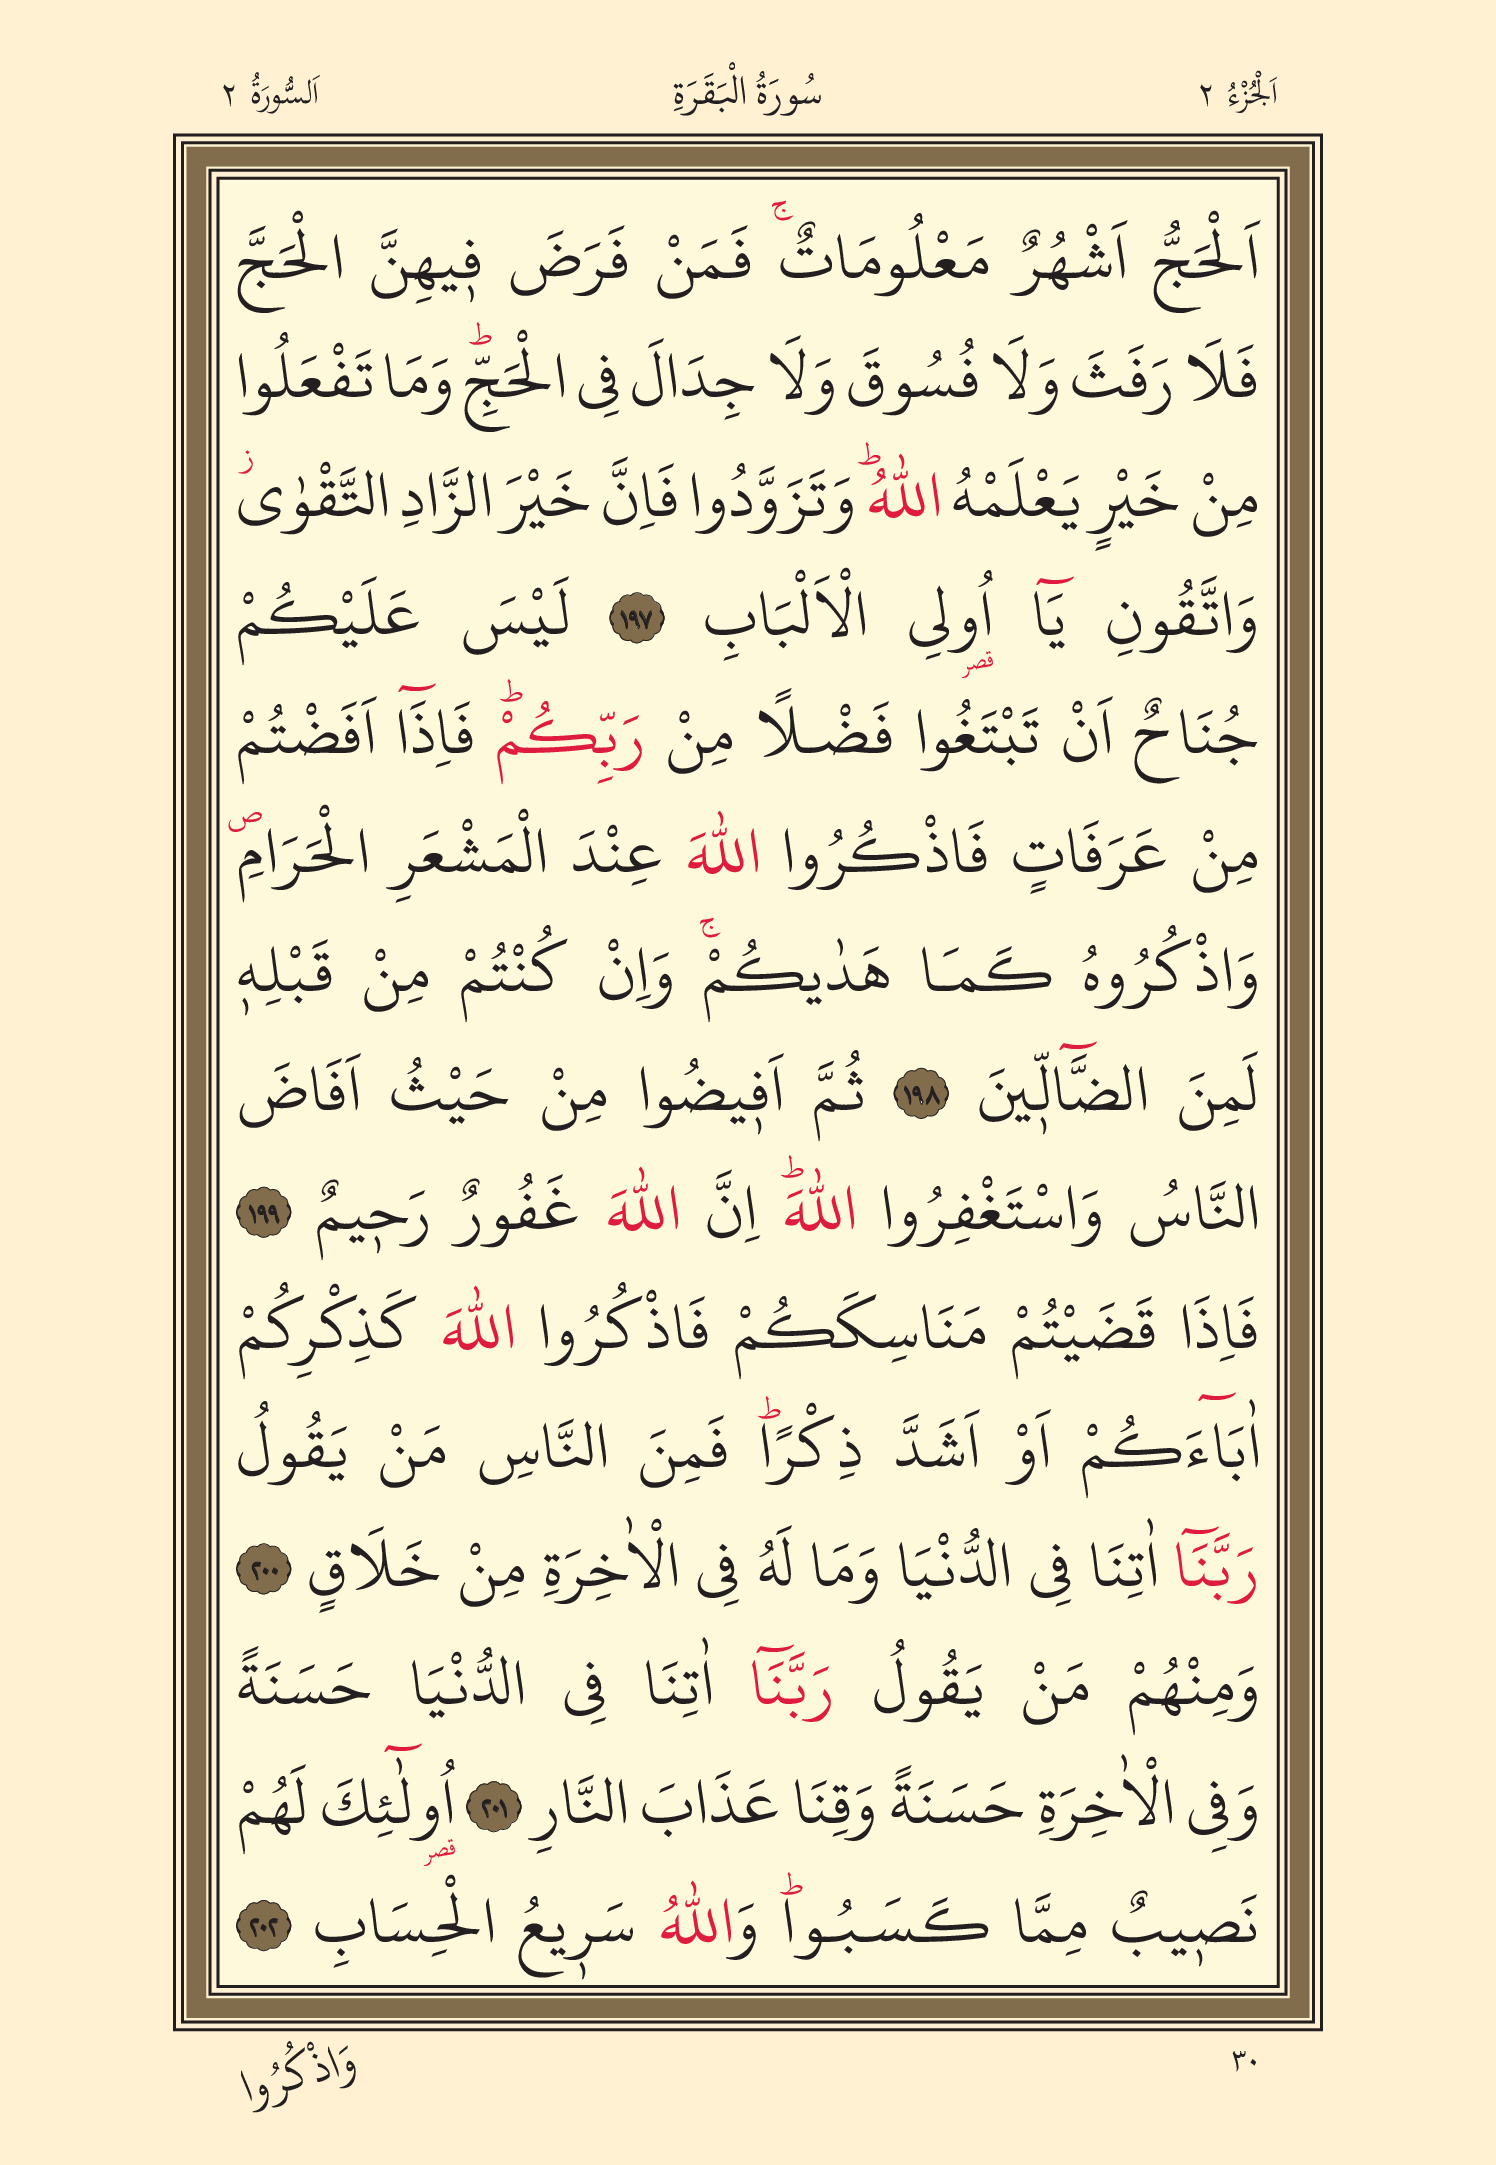 اَلْجُزْءُ ٢ سُورَةُ الْبَقَرَةِ اَلسُّورَةُ ٢
اَلْحَجُّ اَشْهُرٌ مَعْلُومَاتٌۚ فَمَنْ فَرَضَ ف۪يهِنَّ الْحَجَّ
فَلَا رَفَثَ وَلَا فُسُوقَ وَلَا جِدَالَ فِى الْحَجِّۜ وَمَا تَفْعَلُوا
مِنْ خَيْرٍ يَعْلَمْهُ اللّٰهُۜ وَتَزَوَّدُوا فَاِنَّ خَيْرَ الزَّادِ التَّقْوٰىۘ
وَاتَّقُونِ يَٓا اُولِى الْاَلْبَابِ ﴿١٩٧﴾ لَيْسَ عَلَيْكُمْ
جُنَاحٌ اَنْ تَبْتَغُوا فَضْلًا مِنْ رَبِّكُمْۜ فَاِذَٓا اَفَضْتُمْ
مِنْ عَرَفَاتٍ فَاذْكُرُوا اللّٰهَ عِنْدَ الْمَشْعَرِ الْحَرَامِۖ
وَاذْكُرُوهُ كَمَا هَدٰيكُمْۚ وَاِنْ كُنْتُمْ مِنْ قَبْلِه۪
لَمِنَ الضَّٓالّ۪ينَ ﴿١٩٨﴾ ثُمَّ اَف۪يضُوا مِنْ حَيْثُ اَفَاضَ
النَّاسُ وَاسْتَغْفِرُوا اللّٰهَۜ اِنَّ اللّٰهَ غَفُورٌ رَح۪يمٌ ﴿١٩٩﴾
فَاِذَا قَضَيْتُمْ مَنَاسِكَكُمْ فَاذْكُرُوا اللّٰهَ كَذِكْرِكُمْ
اٰبَٓاءَكُمْ اَوْ اَشَدَّ ذِكْرًاۜ فَمِنَ النَّاسِ مَنْ يَقُولُ
رَبَّنَٓا اٰتِنَا فِى الدُّنْيَا وَمَا لَهُ فِى الْاٰخِرَةِ مِنْ خَلَاقٍ ﴿٢٠٠﴾
وَمِنْهُمْ مَنْ يَقُولُ رَبَّنَٓا اٰتِنَا فِى الدُّنْيَا حَسَنَةً
وَفِى الْاٰخِرَةِ حَسَنَةً وَقِنَا عَذَابَ النَّارِ ﴿٢٠١﴾ اُولٰٓئِكَ لَهُمْ
نَص۪يبٌ مِمَّا كَسَبُواۜ وَاللّٰهُ سَر۪يعُ الْحِسَابِ ﴿٢٠٢﴾
٣٠ وَاذْكُرُوا